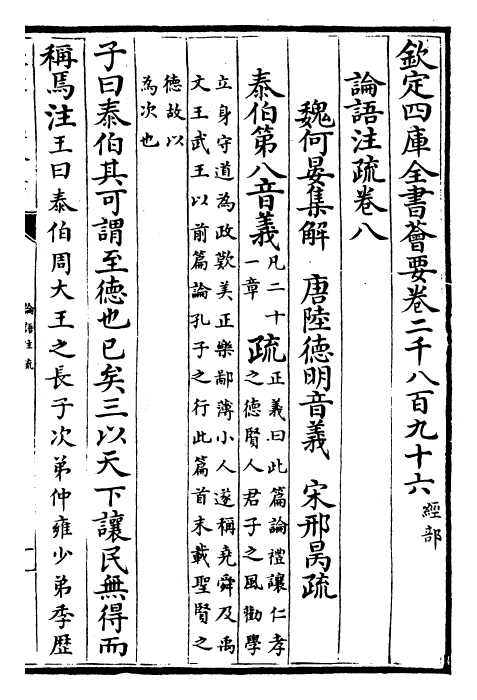 欽定四庫全書薈要卷二千八百九十六 經部
論語注疏卷八
魏何晏集解 唐陸德明音義 宋邢昺疏
泰伯第八音義 凡二十一章 疏 正義曰此篇論禮讓仁孝之德賢人君子之風勸學
立身守道為政歎美正樂鄙薄小人遂稱堯舜及禹
文王武王以前篇論孔子之行此篇首末載聖賢之
德故以
為次也
子曰泰伯其可謂至德也已矣三以天下讓民無得而
稱焉注王曰泰伯周大王之長子次弟仲雍少弟季歴
論語注疏